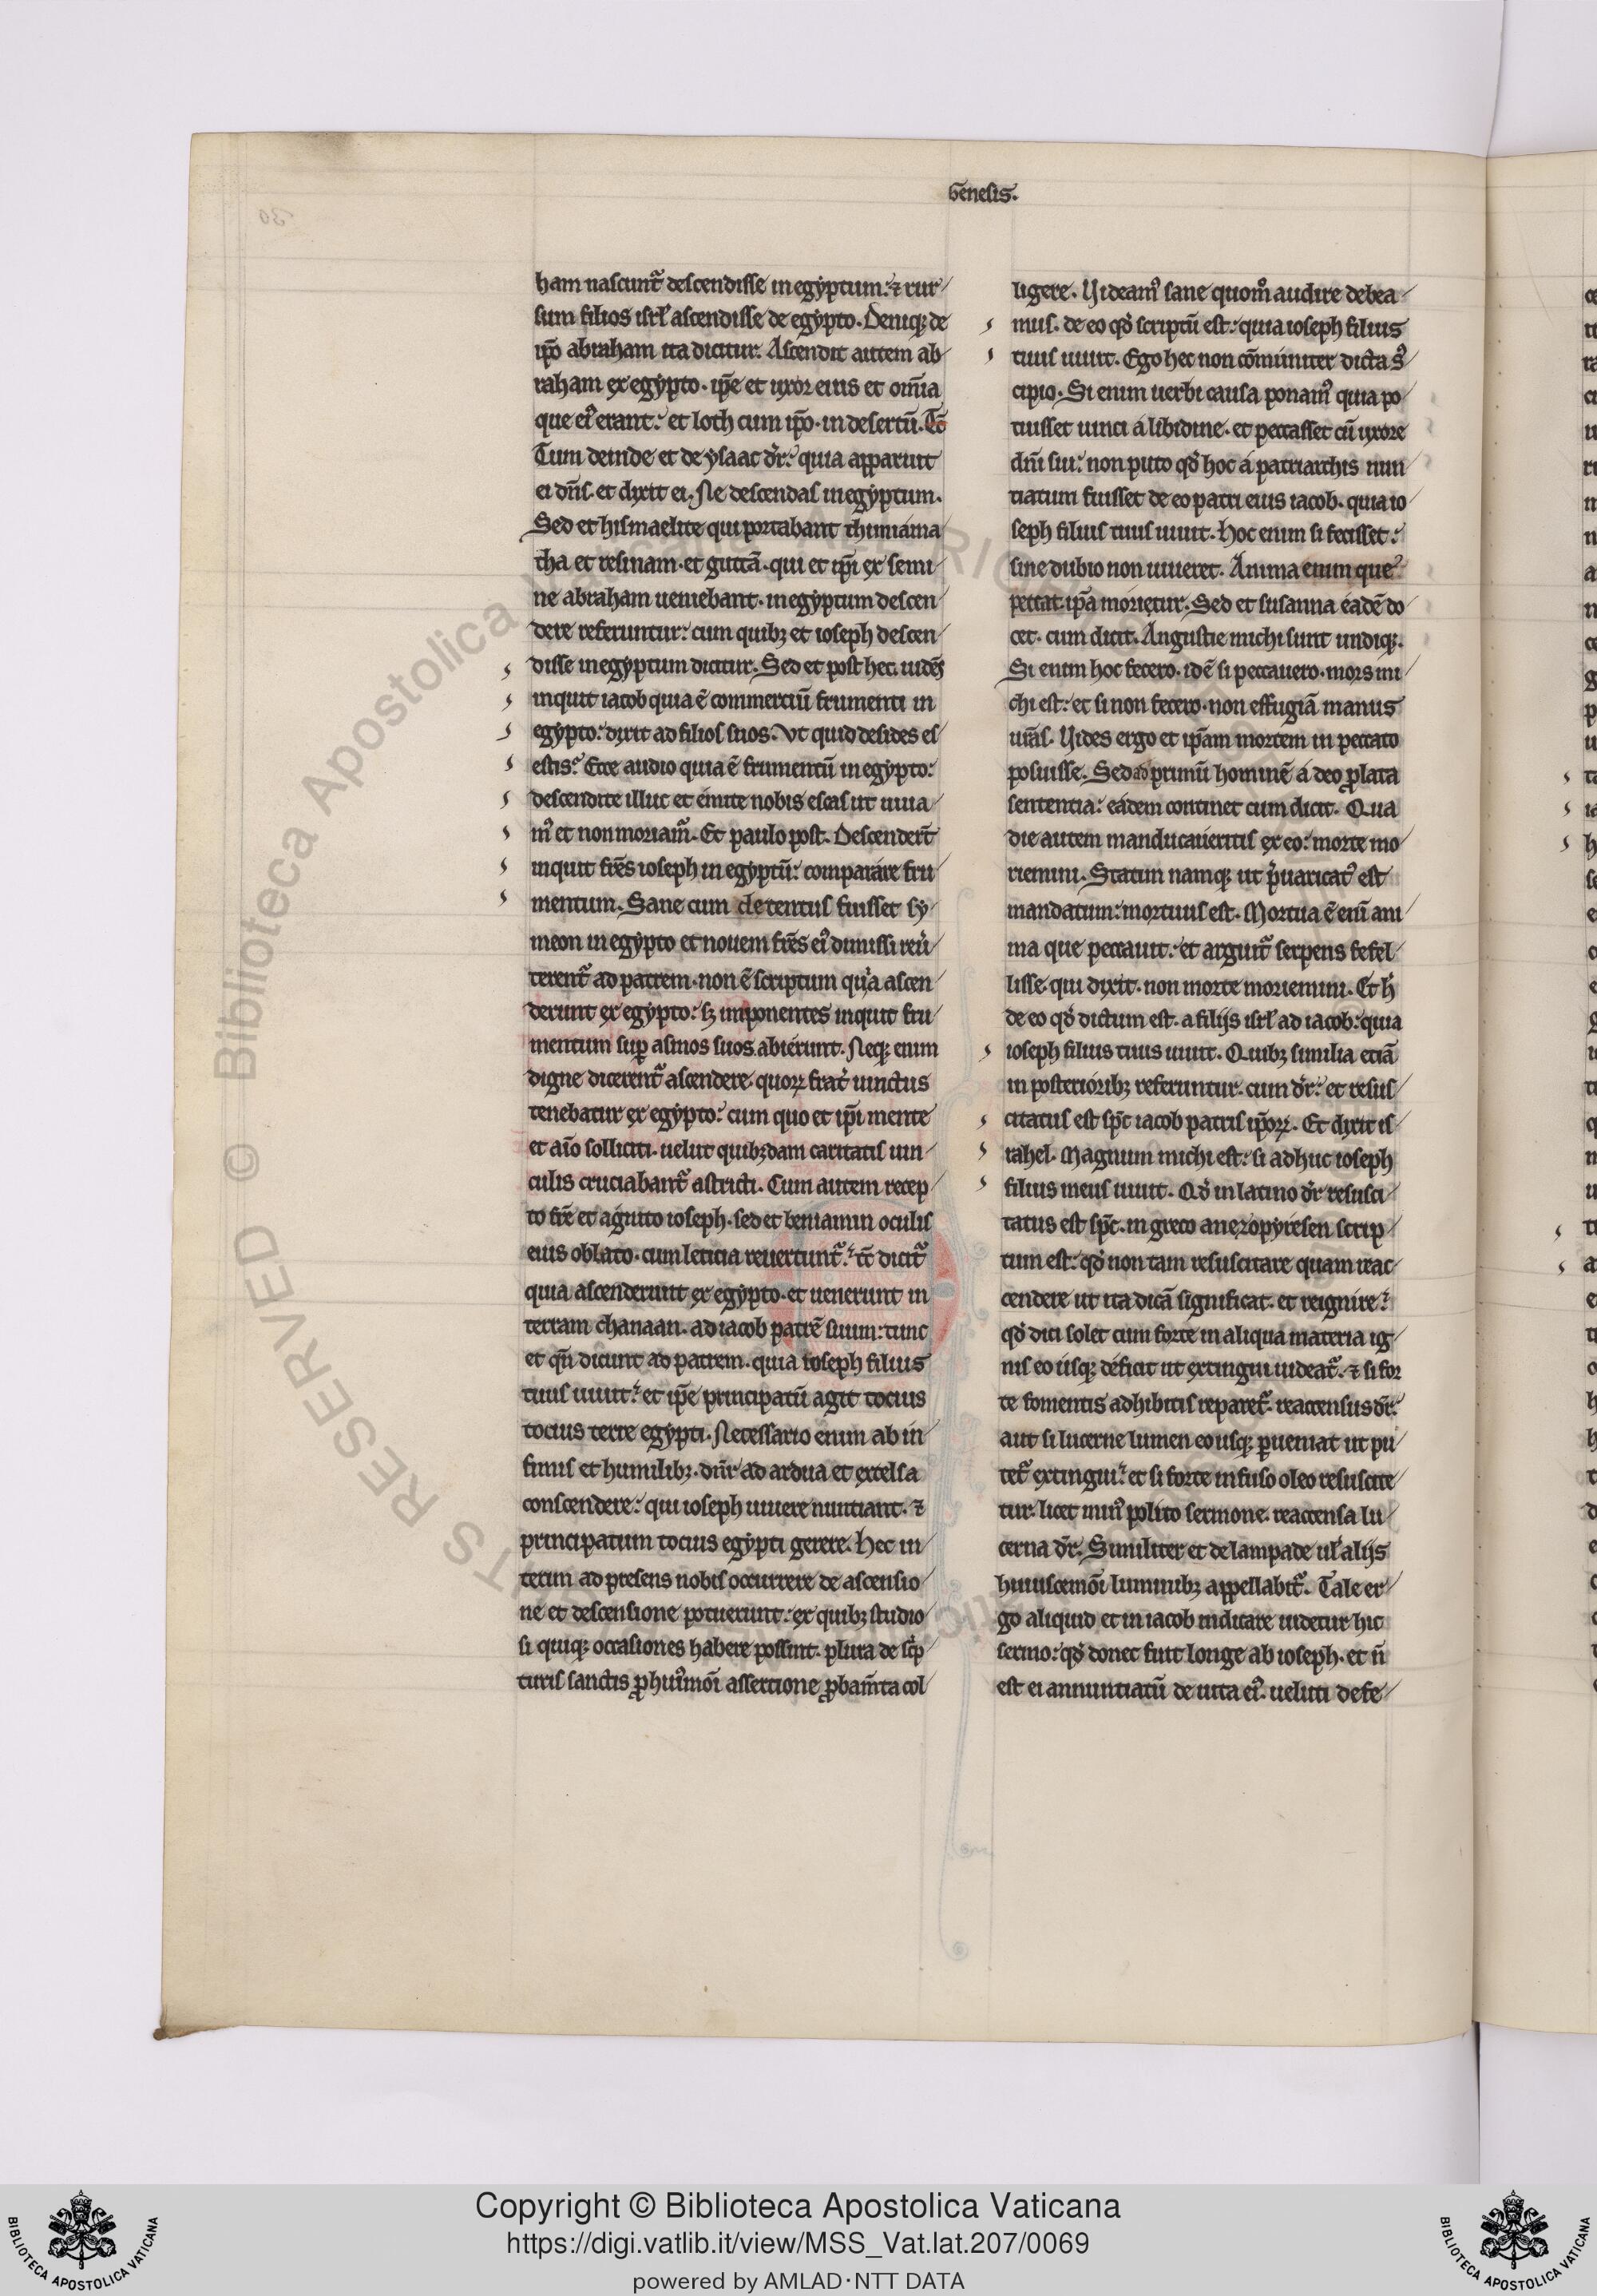 Genesis.
ham nascunt᷑ descendisse in egyptum: ⁊ rur
sum filios isrl̓ ascendisse de egypto. Deniq; de
ip̄o abraham ita dicitur. Ascendit autem ab
raham ex egypto. ip̄e et uxor eius et om̄ia
que ei᷒ erant: et loth cum ip̄o. in desertū. Tc̄
Tum deinde et de ysaac dr̄: quia apparuit
ei dn̄s. et dixit ei. Ne descendas in egyptum.
Sed et hismaelite qui portabant thimiama
tha et resinam. et guttā. qui et ip̄i ex semi
ne abraham ueniebant. in egyptum descen
dere referuntur: cum quib; et ioseph descen
disse in egyptum dicitur. Sed et post hec. uidēs
inquit iacob quia ē commerciū frumenti in
egypto: dixit ad filios suos. Vt quid desides es
estis? Ecce audio quia ē frumentū in egypto:
descendite illuc et emite nobis escas ut uiua
m᷒ et non moriam᷑. Et paulo post. Descender̄t
inquit fr̄es ioseph in egyptū: comparare fru
mentum. Sane cum detentus fuisset sy
meon in egypto et nouem fr̄es ei᷒ dimissi reu̓
terent᷑ ad patrem. non ē scriptum quia ascen
derunt ex egypto: s; imponentes inquit fru
mentum sup̄ asinos suos. abierunt. Neq; enim
digne dicerent᷑ ascendere. quoꝝ frat̓ uinctus
tenebatur ex egypto: cum quo et ip̄i mente
et aīo solliciti. uelut quib;dam caritatis uin
culis cruciabant᷑ astricti. Cum autem recep
to fr̄e et agnito ioseph. sed et beniamin oculis
eius oblato. cum leticia reuertunt᷑: tc̄ dicit᷑
quia ascenderunt ex egypto. et uenerunt in
terram chanaan. ad iacob patrē suum: tunc
et qn̄ dicunt ad patrem. quia ioseph filius
tuus uiuit: et ip̄e principatū agit tocius
tocius terre egypti. Necessario enim ab in
fimis et humilib;. dn̄r ad ardua et excelsa
conscendere: qui ioseph uiuere nuntiant. ⁊
principatum tocius egypti gerere. Hec in
terim ad presens nobis occurrere de ascensio
ne et descensione potuerunt: ex quib; studio
si quiq; occasiones habere possint. plura de sc̓p
turis sanctis ꝓ hui᷒mōi assertione ꝓbam̄ta col
ligere. Uideam᷒ sane quom̊ audire debea
mus. de eo qđ scriptū est: quia ioseph filius
tuus uiuit. Ego hec non cōmuniter dicta s᷒
cipio. Si enim uerbi causa ponam᷒ quia po
tuisset uinci a libidine. et peccasset cū uxore
dn̄i sui: non puto qđ hoc a patriarchis nun
tiatum fuisset de eo patri eius iacob. quia io
seph filius tuus uiuit. Hoc enim si fecisset:
sine dubio non uiueret. Anima enim que
peccat. ip̄a morietur. Sed et susanna eadē do
cet. cum dicit. Angustie michi sunt undiq;.
Si enim hoc fecero. idē si peccauero. mors mi
chi est: et si non fecero. non effugiā manus
ur̄as. Uides ergo et ip̄am mortem in peccato
posuisse. Sed ad primū hominē a deo ꝓlata
sententia: eadem continet cum dicit. Qua
die autem manducaueritis ex eo: morte mo
riemini. Statim namq; ut p̓uaricat᷒ est
mandatum: mortuus est. Mortua ē eni̅ ani
ma que peccauit: et arguit᷑ serpens fefel
lisse. qui dixit. non morte moriemini. Et h̓
de eo qđ dictum est. a filijs isrl̓ ad iacob: quia
ioseph filius tuus uiuit. Quib; similia etiā
in posteriorib; referuntur. cum dr̄: et resus
citatus est sp̄c iacob patris ip̄oꝝ. Et dixit is
rahel. Magnum michi est: si adhuc ioseph
filius meus uiuit. Qđ in latino dr̄ resusci
tatus est sp̄c. in greco anezopyresen scrip
tum est: qđ non tam resuscitare quam reac
cendere ut ita dicā significat. et reignire:
qđ dici solet cum forte in aliqua materia ig
nis eo usq; deficit ut extingui uideat᷑. ⁊ si for
te fomentis adhibitis reparet᷑. reaccensus dr̄:
aut si lucerne lumen eousq; ꝑueniat ut pu
tet᷑ extingui: et si forte infuso oleo resuscite
tur. licet min᷒ polito sermone. reaccensa lu
cerna dr̄. Similiter et de lampade ul̓ alijs
huiuscemōi luminib; appellabit᷑. Tale er
go aliquid et in iacob indicare uidetur hic
sermo: qđ donec fuit longe ab ioseph. et n̄
est ei annuntiatū de uita ei᷒. ueluti defe
Copyright © Biblioteca Apostolica Vaticana
https://digi.vatlib.it/view/MSS_Vat.lat.207/0069
powered by AMLAD·NTT DATA